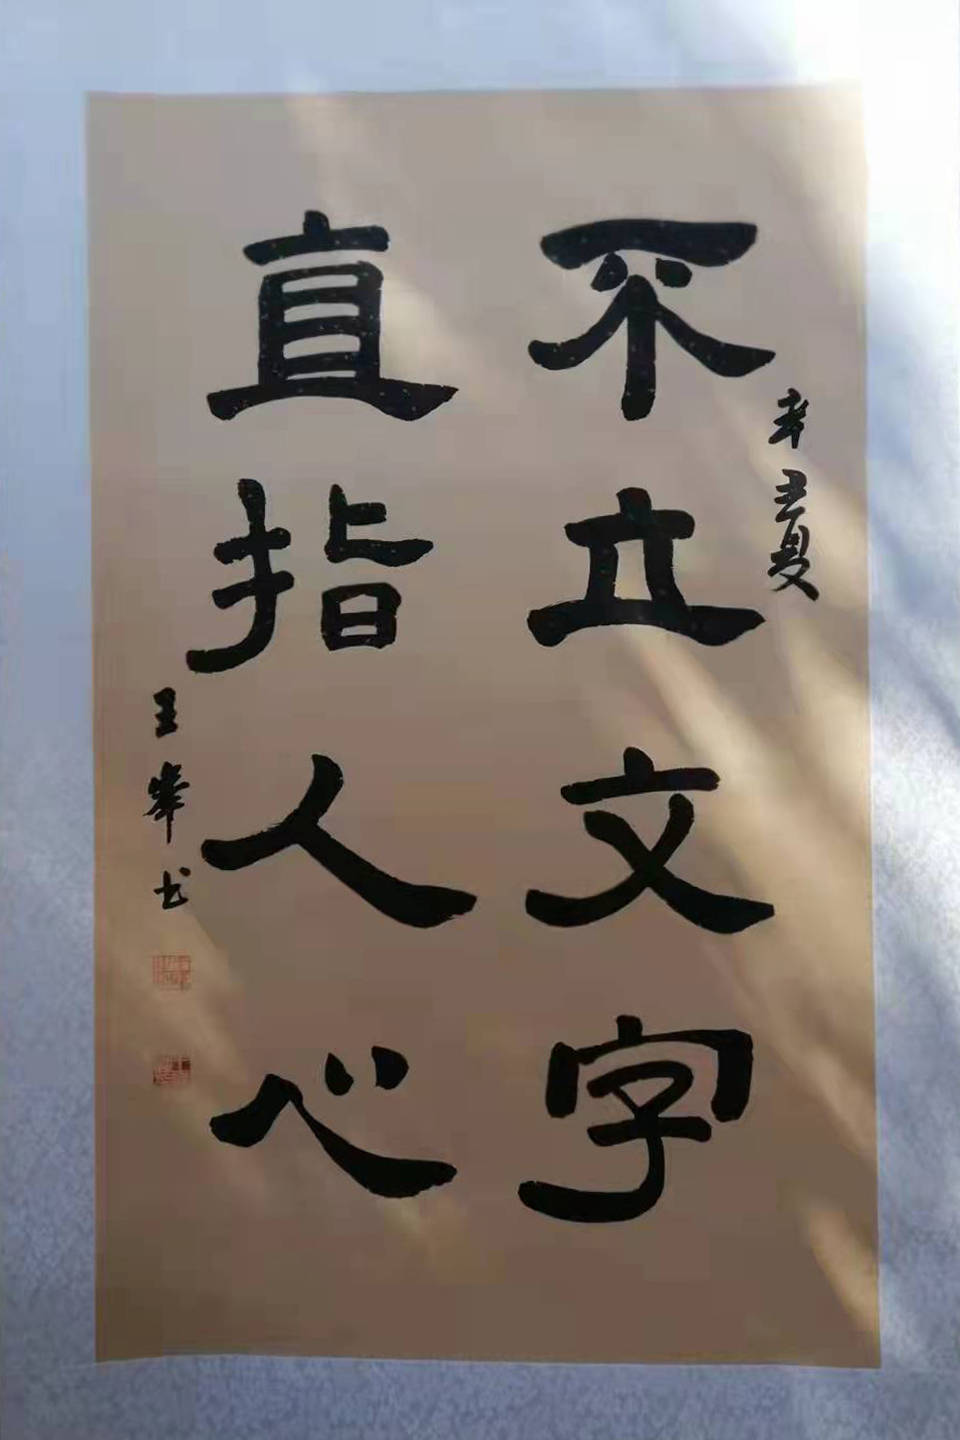 不立文字
直指人心
辛丑夏
王峰书